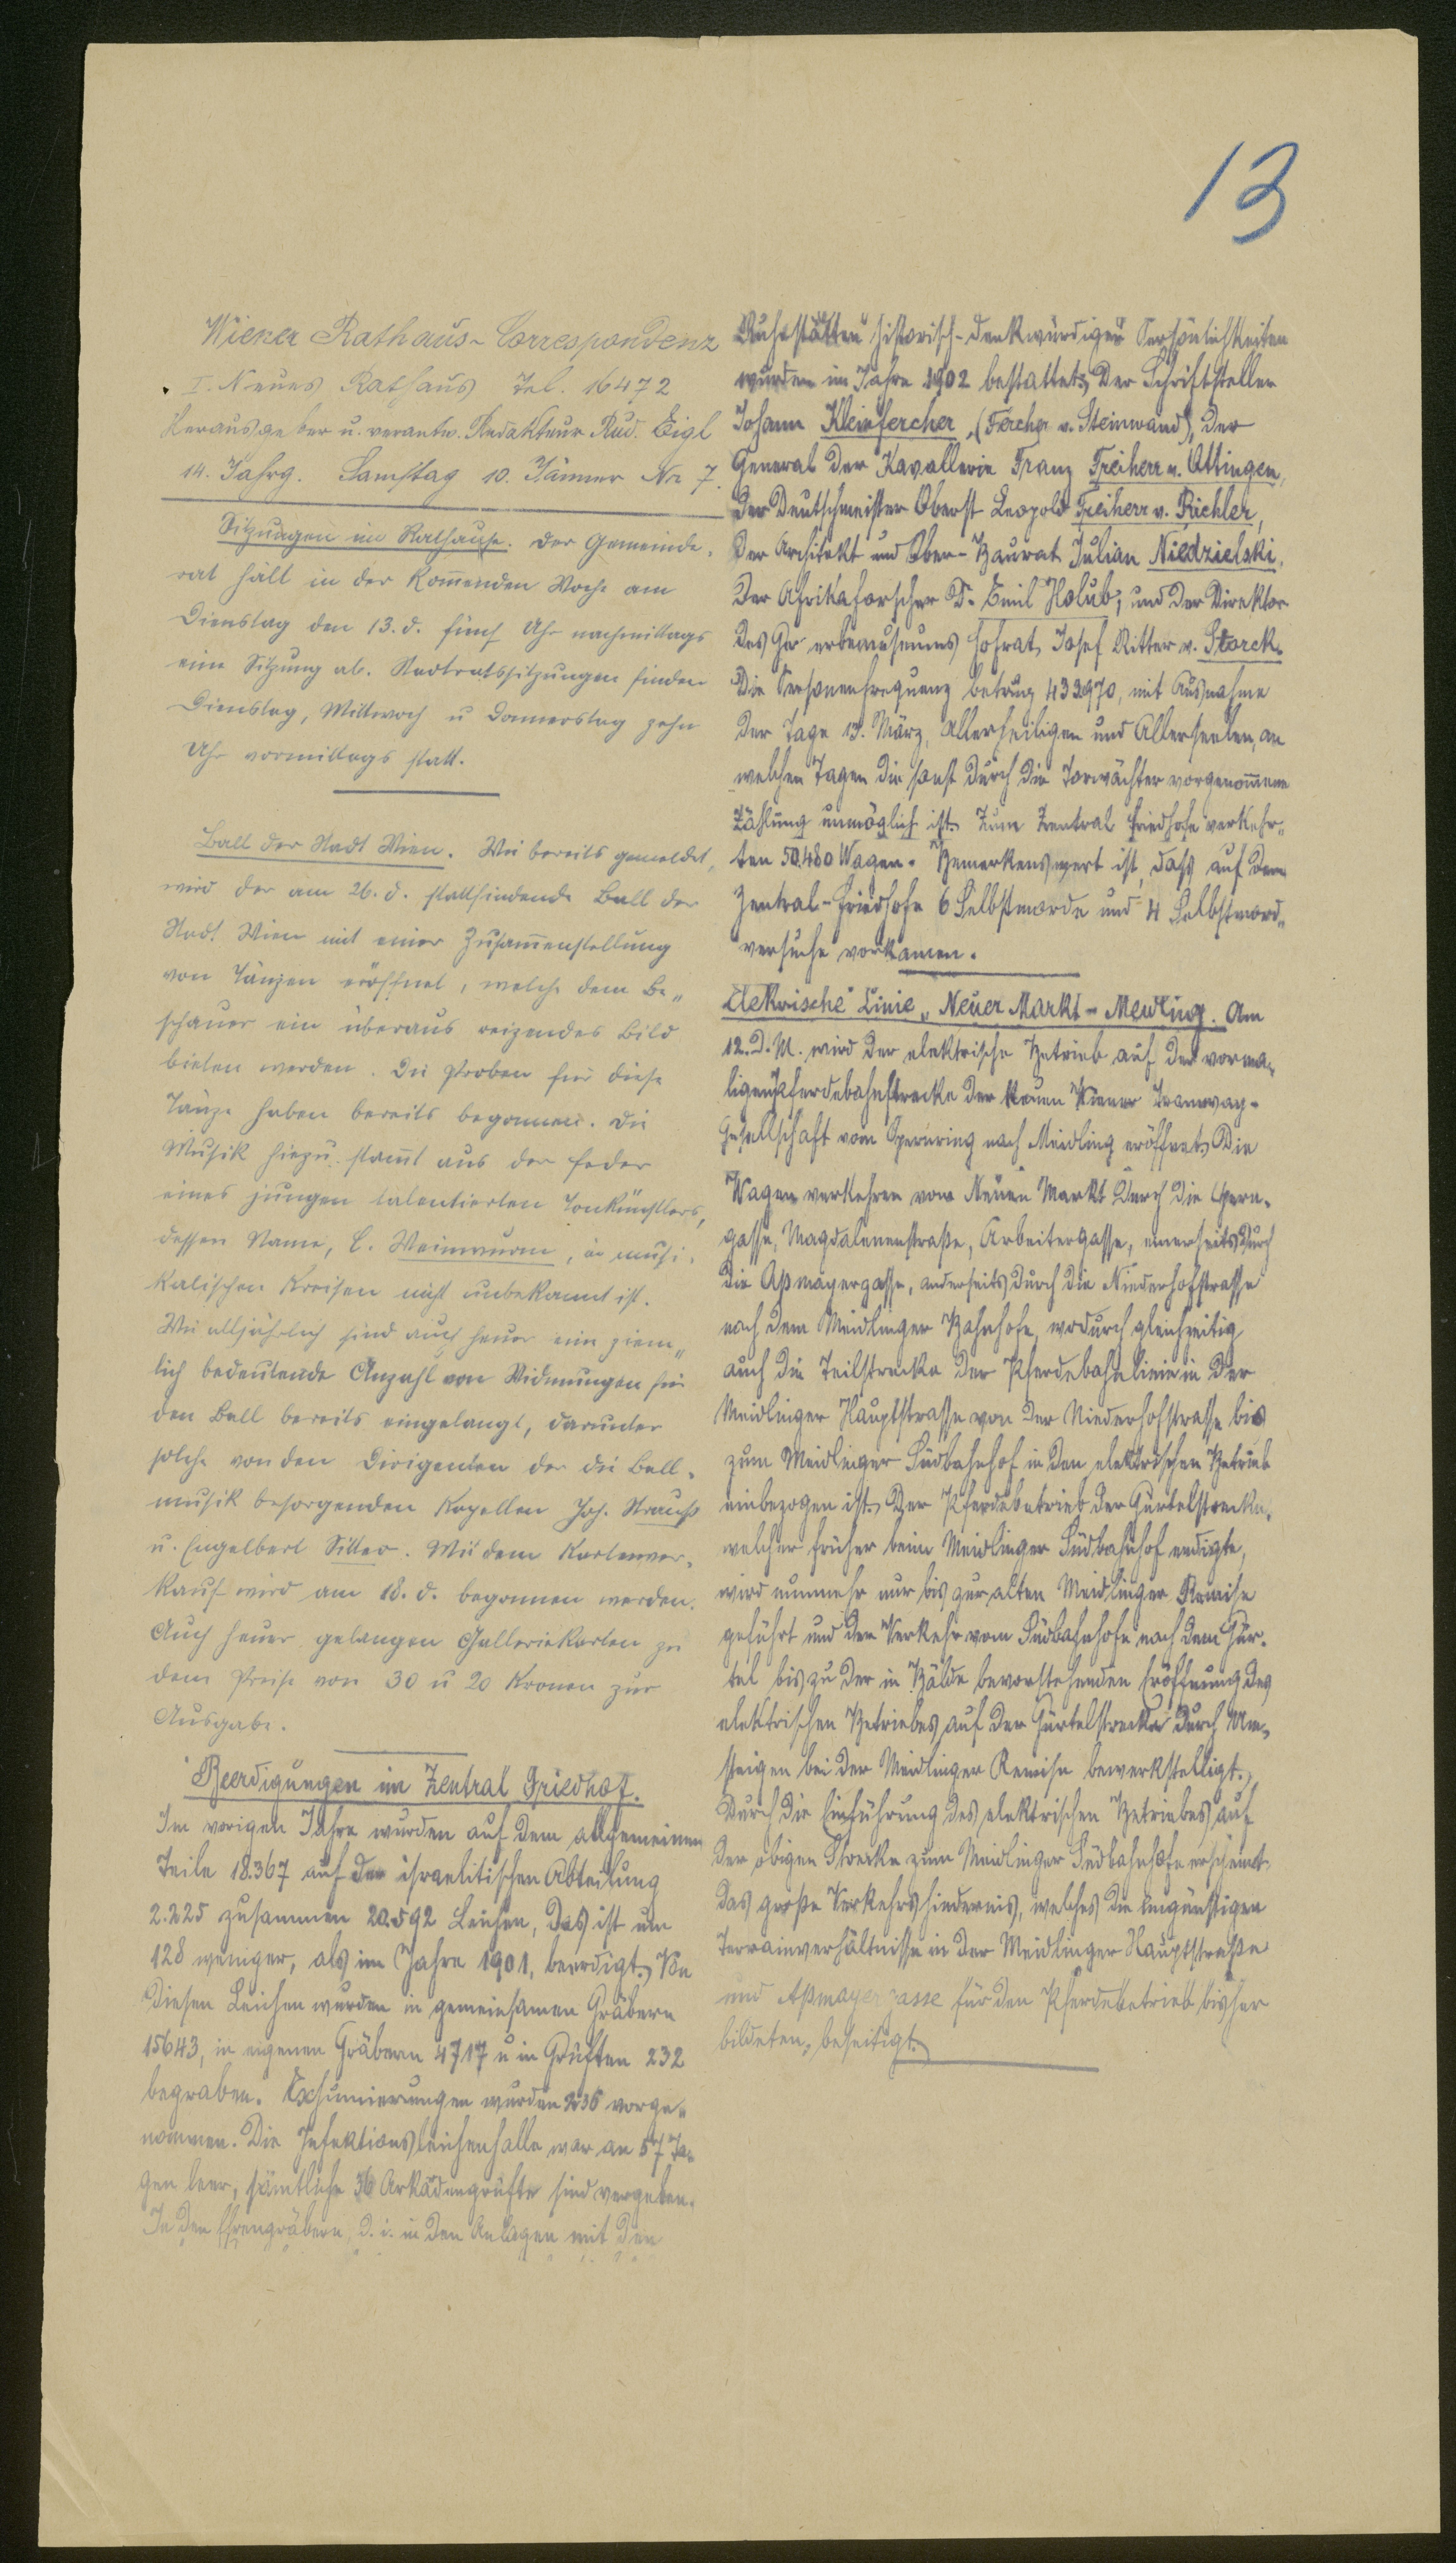 13
Wiener Rathaus-Correspondenz
I. Neues Rathaus Tel. 16472
Herausgeber u. verantw. Redakteur Rud. Eigl
14. Jahrg. Samstag 10. Jänner Nr 7.
Sitzungen im Rathause. Der Gemeinde-
rat hält in der kom̅enden Woche am
Dienstag den 13. d. fünf Uhr nachmittags
eine Sitzung ab. Stadtratssitzungen finden
Dienstag, Mittwoch u Donnerstag zehn
Uhr vormittags statt.
Ball der Stadt Wien. Wie bereits gemeldet,
wird der am 26. d. stattfindende Ball der
Stadt Wien mit einer Zusam̅enstellung
von Tänzen eröffnet, welche dem Be„
schauer ein überaus reizendes Bild
bieten werden. Die Proben für diese
Tänze haben bereits begonnen. Die
Musik hiezu stam̅t aus der Feder
eines jungen talentierten Tonkünstlers,
dessen Name, C. Weinwurm, in musi-
kalischen Kreisen nicht unbekannt ist.
Wie alljährlich sind auch heuer eine ziem„
lich bedeutende Anzahl von Widmungen für
den Ball bereits eingelangt, darunter
solche von den Dirigenten der die Ball-
musik besorgenden Kapellen Joh. Strauß
u. Engelbert Sitter. Mit dem Kartenver-
kauf wird am 18. d. begonnen werden.
Auch heuer gelangen Galleriekarten zu
dem Preise von 30 u 20 Kronen zur
Ausgabe.
Beerdigungen im Zentral Friedhof.
Im vorigen Jahre wurden auf dem allgemeinen
Teile 18.367 auf der israelitischen Abteilung
2.225 zusammen 20.592 Leichen, das ist um
128 weniger, als im Jahre 1901, beerdigt. Von
diesen Leichen wurden in gemeinsamen Gräbern
15643, in eigenen Gräbern 4717 u in Grüften 232
begraben. Exhumierungen wurden 236 vorge-
nommen. Die Infektionsleichenhalle war an 57 Ta-
gen leer, sämtliche 36 Arkadengrüfte sind vergeben.
In den Ehrengräbern, d. i. in den Anlagen mit den
Ruhestätten historisch-denkwürdiger Persönlichkeiten
wurden im Jahre 1902 bestattet: Der Schriftsteller
Johann Kleinfercher, (Fercher v. Steinwand), der
General der Kavallerie Franz Freiherr v. Ottingen,
der Deutschmeister Oberst Leopold Freiherr v. Pichler,
der Architekt und Ober-Baurat Julian Niedzielski,
der Afrikaforscher Dr. Emil Holub, und der Direktor
des Gewerbemuseums Hofrat, Josef Ritter v. Storck.
Die Personenfrequenz betrug 432970, mit Ausnahme
der Tage 13. März, Allerheiligen und Allerseelen, an
welchen Tagen die sonst durch die Torwächter vorgenom̅ene
Zählung unmöglich ist. Zum Zentral Friedhofe verkehr„
ten 50.480 Wagen. Bemerkenswert ist, daß auf dem
Zentral-Friedhofe 6 Selbstmorde und 4 Selbstmord„
versuche vorkamen.
Elektrische Linie „Neuer Markt - Meidling. Am
12. d. M. wird der elektrische Betrieb auf der vorma-
ligen Pferdebahnstrecke der Neuen Wiener Tramway-
Gesellschaft vom Opernring nach Meidling eröffnet. Die
Wagen verkehren vom Neuen Markt durch die Opern-
gasse, Magdalenenstraße, Arbeitergasse, einerseits durch
die Aßmayergasse, anderseits durch die Niederhofstrasse
nach dem Meidlinger Bahnhofe, wodurch gleichzeitig
auch die Teilstrecke der Pferdebahnlinie in der
Meidlinger Hauptstrasse von der Niederhofstrasse bis
zum Meidlinger Südbahnhof in den elektrischen Betrieb
einbezogen ist. Der Pferdebetrieb der Gürtelstrecke,
welcher früher beim Meidlinger Südbahnhof endigte,
wird nunmehr nur bis zur alten Meidlinger Remise
geführt und der Verkehr vom Südbahnhofe nach dem Gür-
tel bis zu der in Bälde bevorstehenden Eröffnung des
elektrischen Betriebes auf der Gürtelstrecke durch Um-
steigen bei der Meidlinger Remise bewerkstelligt.
Durch die Einführung des elektrischen Betriebes auf
der obigen Strecke zum Meidlinger Südbahnhofe erscheint
das große Verkehrshindernis, welches die ungünstigen
Terrainverhältnisse in der Meidlinger Hauptstraße
und Aßmayergasse für den Pferdebetrieb bisher
bildeten, beseitigt.